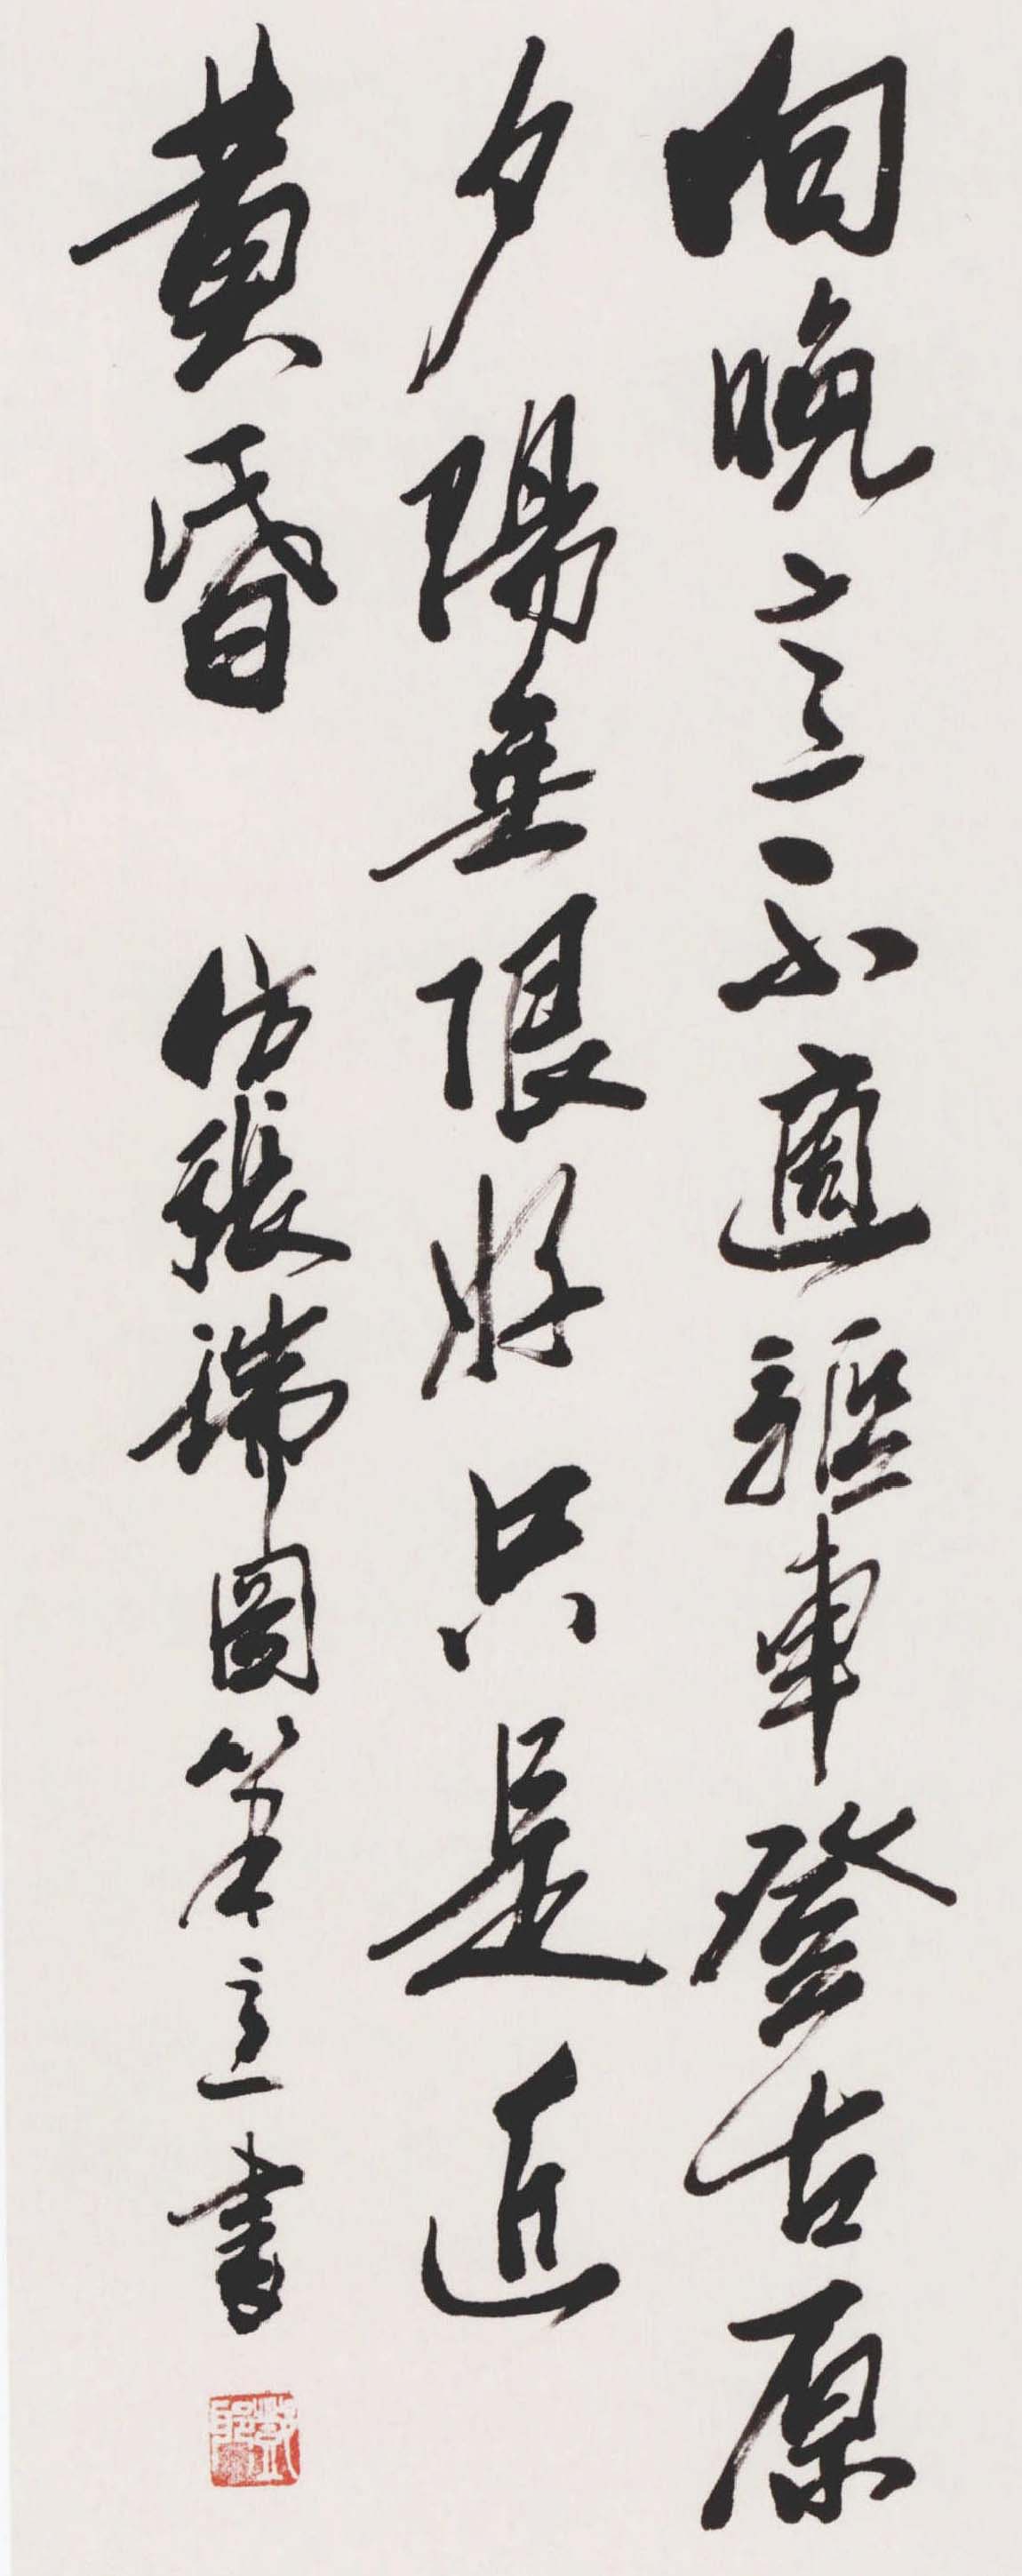 向晚意不適驅車登古原
夕陽無限好只是近
黄昏 仿張瑞圖筆意書